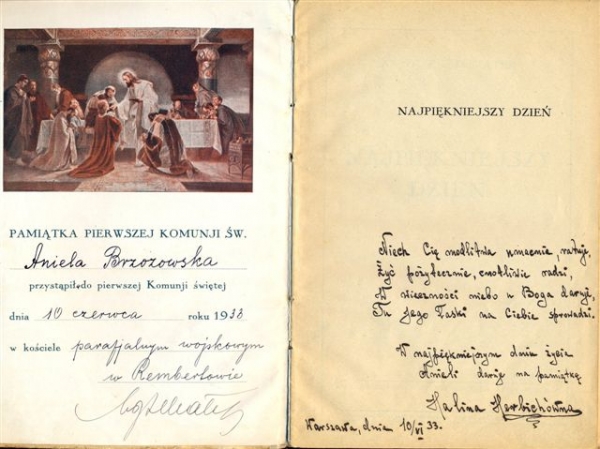 PAMIĄTKA PIERWSZEJ KOMUNJI ŚW.
Aniela Brzozowska
przystąpiła do pierwszej Komunji świętej
dnia 10 czerwca roku 1933
w kościele parafjalnym wojskowym
w Rembertowie
NAJPIĘKNIEJSZY DZIEŃ
Niech Cię modlitwa umacnia, ratuje,
Żyć pożytecznie, cnotliwie radzi,
W wieczności niebo u Boga daruje,
Tu Jego Łaski na Ciebie sprowadzi.
W najpiękniejszym dniu życia
Anieli daruje na pamiątkę
Halina Herbichówna
Warszawa, dnia 10/VI 33.